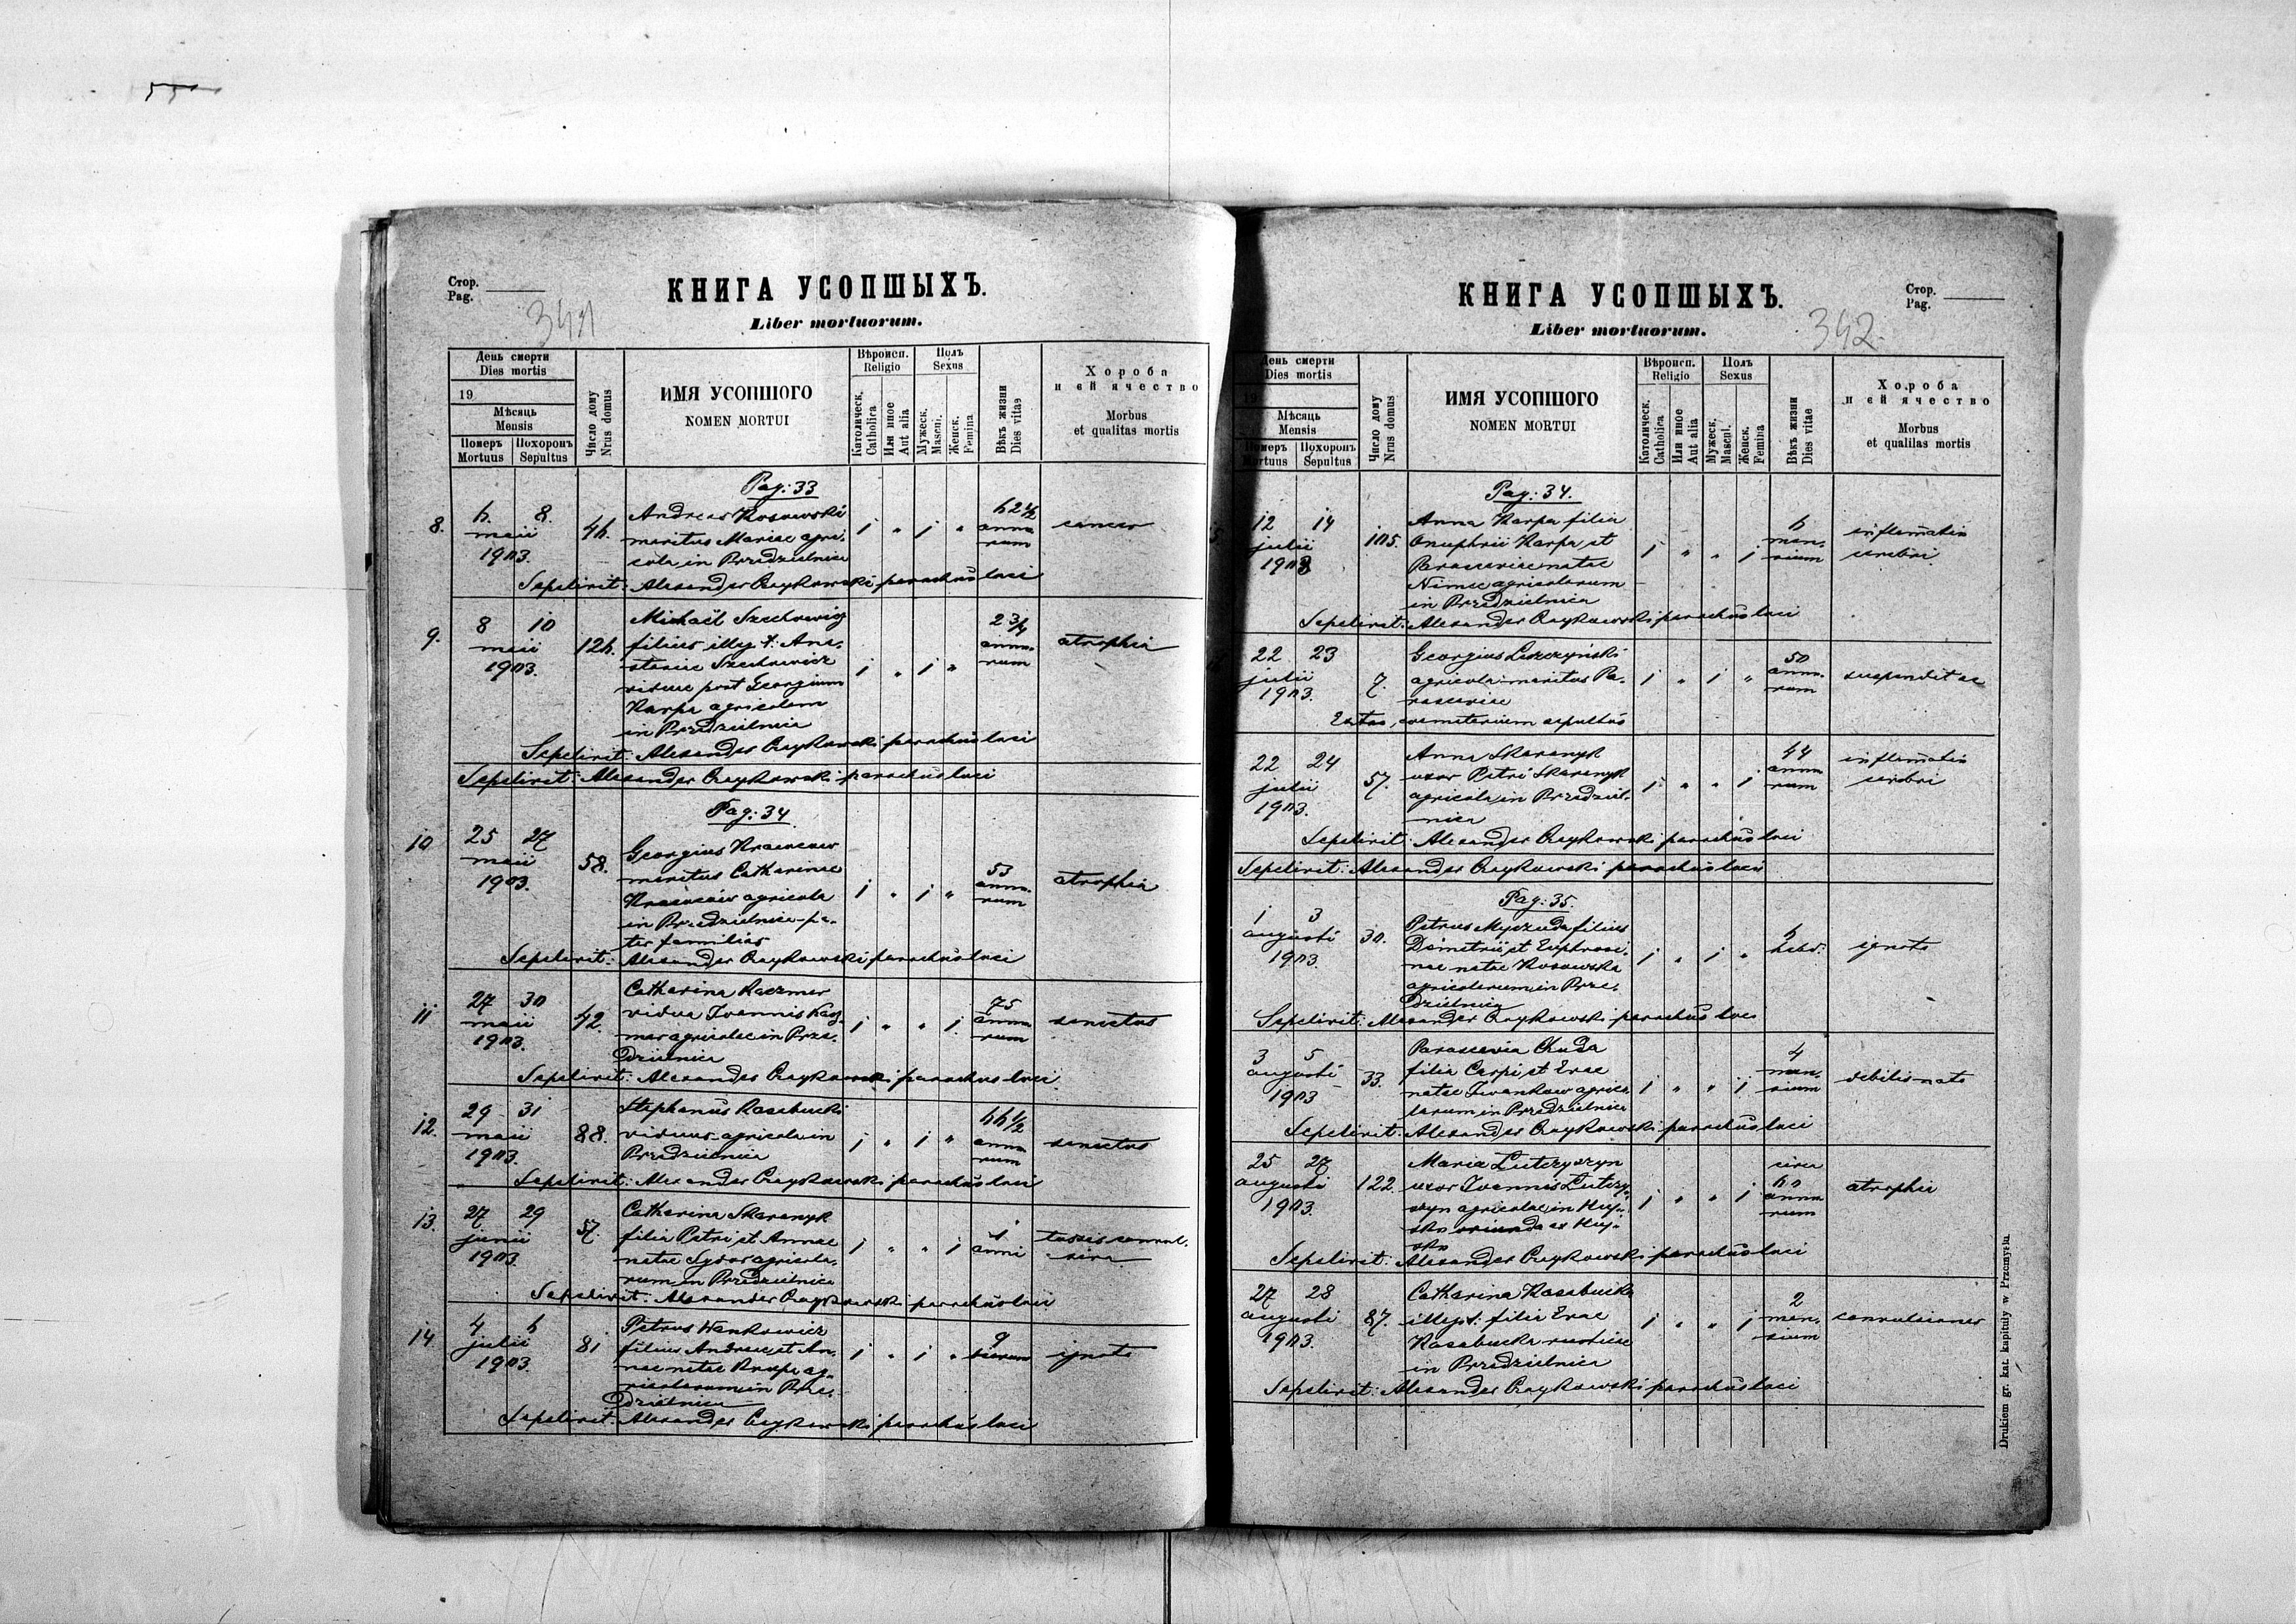 Стор.
Pag.
341
КНИГА УСОПШЫХЪ.
Liber mortuorum.
День смерти
Dies mortis
19
Мѣсяць
Mensis
Померъ
Mortuus
Похоронъ
Sepultus
Число дому
Nrus domus
ИМЯ УСОПШОГО
NOMEN MORTUI
Вѣроисп.
Religio
Католическ.
Catholica
Или иное
Aut alia
Полъ
Sexus
Мужеск.
Mascul.
Женск.
Femina
Вѣкъ жизни
Dies vitae
Хороба
и ей ячество
Morbus
et qualitas mortis
Pag: 33
8. 6. 8. maii 1903. 46.
Andreas Kosowski
maritus Mariae agri-
cola in Przedzielnica
62 1/2 anno-
rum
cancer
Sepelivit: Alexander Czajkowski parochus loci
9. 8 10 maii 1903. 126.
Michaël Szechowicz
filius illeg. t: Ana-
stasiae Szechowicz
viduae post Georgium
Karpa agricolam
in Przedzielnica
2 3/4
anno-
rum
atrophia
Sepelivit: Alexander Czajkowski parochus loci
Sepelivit: Alexander Czajkowski parochus loci
Pag: 34
10 25 27 maii 1903. 58.
Georgius Krawcow
maritus Catharinae
Krawciw agricola
in Przedzielnica - pa-
ter familias
53
anno-
rum
atrophia
Sepelivit: Alexander Czajkowski parochus loci
11 27 30 maii 1903. 42.
Catharina Kaczmar
vidua Joannis Kacz-
mar agricolae in Prze-
dzielnica
75
anno
rum
senectus
Sepelivit: Alexander Czajkowski parochus loci
12. 29 31 maii 1903. 88.
Stephanus Kasabucki
viduus agricola in
Przedzielnica
66 1/2
anno
rum
senectus
Sepelivit: Alexander Czajkowski parochus loci
13. 27 29 junii 1903. 57.
Catharina Skaranyk
filia Petri et Annae
natae Sydor agricola-
rum in Przedzielnica
1
anni
tussis convul-
siva
Sepelivit: Alexander Czajkowski parochus loci
14. 4 6 julii 1903. 81
Petrus Wankowicz
filius Andreae et An-
nae natae Karpa ag-
ricolarum in Prze-
dzielnica
9
dierum
ignota
Sepelivit: Alexander Czajkowski parochus loci
КНИГА УСОПШЫХЪ.
Liber mortuorum.
Стор.
Pag.
342.
День смерти
Dies mortis
19
Мѣсяць
Mensis
Померъ
Mortuus
Похоронъ
Sepultus
Число дому
Nrus domus
ИМЯ УСОПШОГО
NOMEN MORTUI
Вѣроисп.
Religio
Католическ.
Catholica
Или иное
Aut alia
Полъ
Sexus
Мужеск.
Mascul.
Женск.
Femina
Вѣкъ жизни
Dies vitae
Хороба
и ей ячество
Morbus
et qualitas mortis
Pag: 34.
12 14 julii 1903 105.
Anna Karpa filia
Onuphrii Karpa et
Parasceviae natae
agricolarum
in Przedzielnica
6
men-
sium
inflamatio
cerebri
Sepelivit: Alexander Czajkowski parochus loci
22 23 julii 1903. 7.
Georgius Leszczyński
agricola maritus Pa-
rasceviae
50
anno-
rum
suspendit se
Extra coemeterium sepultus
22 24 julii 1903. 57.
Anna Skaranyk
uxor Petri Skaranyk
agricola in Przedziel-
nica
44
anno
rum
inflamatio
cerebri
Sepelivit: Alexander Czajkowski parochus loci
Sepelivit: Alexander Czajkowski parochus loci
Pag: 35.
1 3 augusti 1903. 30.
Petrus filius
Demetrii et Euphrosi-
nae natae Kosowska
agricolarum in Prze-
dzielnica
hebd.
ignota
Sepelivit: Alexander Czajkowski parochus loci
3 5 augusti 1903 33.
Parascevia Chuda
filia Carpi et Evae
natae Iwankow agrico-
larum in Przedzielnica
4
men-
sium
debilis nata
Sepelivit: Alexander Czajkowski parochus loci
25 27 augusti 1903. 122.
Maria Lutczyszyn
uxor Joannis Lutczy-
szyn agricolae in Huj-
sko oriunda ex Huj-
sko
circa
60
anno
rum
atrophia
Sepelivit: Alexander Czajkowski parochus loci
27 28 augusti 1903. 87.
Catharina Kasabucka
illegt: filia Evae
Kasabucka rusticae
in Przedzielnica
2
men-
sium
convulsiones
Sepelivit: Alexander Czajkowski parochus loci
Drukiem gr. kat. kapituły w Przemyślu.